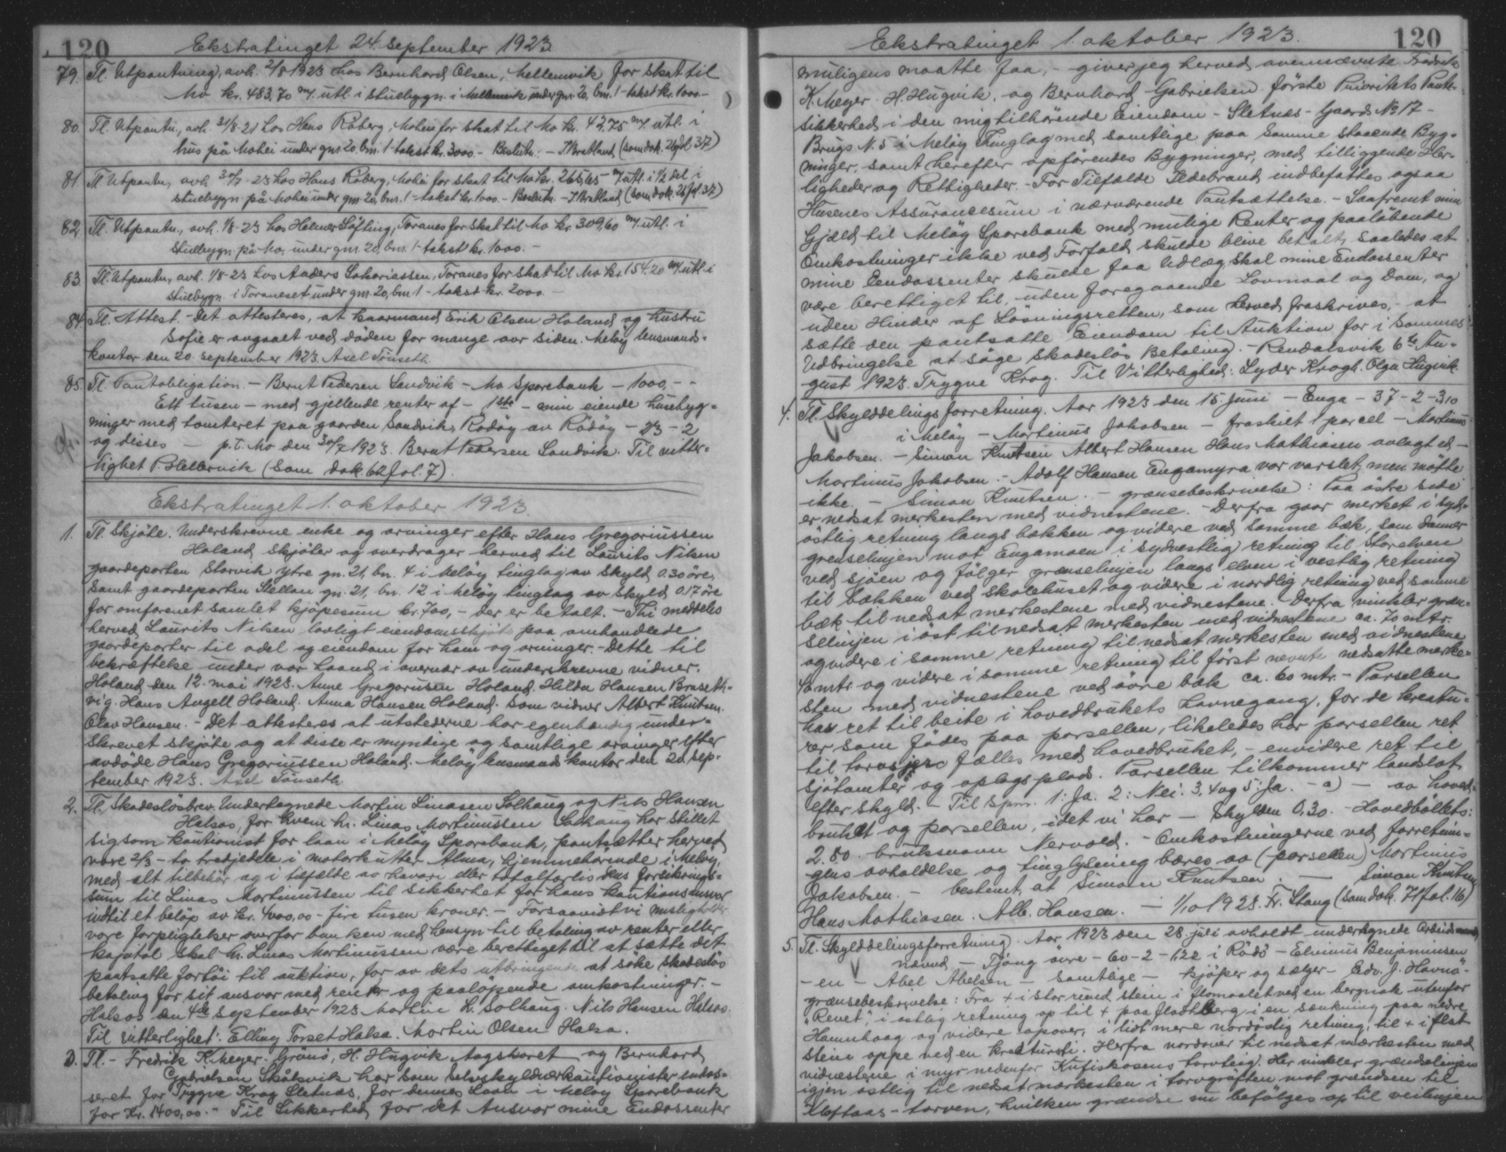 120
Ekstratinget 24 september 1923
79. Tl. Utpantning, avh. 2/8 1923 hos Bernhard Olsen, Mellemvik for skat til
Mo kr. 483,70 m/ utl i stuebygn. i Mellemvik under gnr. 20, bnr. 1 - takst kr. 1000 -
80. Tl. Utpantn, avh. 31/8-23 hos Hans Råberg, Mohei for skat til Mo kr. 49,75 m/ utl. i
hus på Mohei under gnr. 20, bnr. 1 - takst kr. 3000 - Beslutn. - (som dok. 37)
81. Tl Utpantn, avh. hos Hans Råberg, Mohei for skat til Mo kr. 265,65 m/ utl. i 1/2 del i
stuebygn på Mohei under gnr. 20, bnr. 1 - takst kr. 1000. - Beslutn. - (som dok. 37)
82. Tl. Utpantn, avh. 1/8-23 hos Helmer Søfting, Toranes for skat til Mo kr. 309,60 m/ utl. i
stuebygn. på Mo, under gnr. 20, bnr. 1 - takst kr. 1000. -
83. Tl. Utpantn, avh. 1/8-23 hos Anders Sakariassen, Toranes for skat til Mo kr. 154,20 m/ utl i
stuebygn. i Toraneset under gnr. 20, bnr. 1 - takst kr. 2000 -
84. Tl. Attest. - Det attesteres, at kaarmand Erik Olsen Holand og hustru
Sofie er avgaaet ved döden for mange aar siden. Meløy lensmands-
kontor den 20. september 1923. Axel Tönseth
85. Tl. Pantobligation. - Bernt Pedersen Sandvik - Mo Sparebank - 1000,- -
Ett tusen - med gjellende renter af - 1ste - min eiende husbyg-
ninger med tomteret paa gaarden Sandvik, Rödöy av Rödöy - 73 - 2
og disses - p.t. Mo den 30/7 1923. Bernt Pedersen Sandvik. Til vitter-
lighet (Som dok. 62 fol. 7).
Ekstratinget 1. oktober 1923.
1. Tl. Skjøte. Underskrevne enke og arvinger efter Hans Gregoriussen
Holand skjøter og overdrager herved til Laurits Nilsen
gaardeparten Storvik ytre gn. 21, bn. 4 i Meløy tinglag av skyld 0.30 öre,
samt gaardeparten Hellan gn. 21, bn. 12 i Meløy tinglag av skyld 0.17 öre
for omforenet samlet kjøpesum kr. 700, - der er betalt. - Thi meddeles
herved Laurits Nilsen lovligt eiendomsskjøte paa omhandlede
gaardeparter til odel og eiendom for ham og arvinger. - Dette til
bekræftelse under vor haand i overvær av underskrevne vidner.
Holand den 12. mai 1923. Anne Gregorusen Holand. Hilda Hansen Braseth-
vig. Hans Angell Holand. Anna Hansen Holand. Som vidner Albert Knutsen.
Olav Hansen. - Det attesteres at utstederne har egenhændig under-
skrevet skjøte og at disse er myndige og samtlige arvinger efter
avdöde Hans Gregoriussen Holand. Meløy lensmandskontor den 20. sep-
tember 1923. Axel Tönseth
2. Tl. Skadeslösbrev. Undertegnede Martin Linasen Solhaug og Nils Hansen
Halsos, for hvem hr. Linas Martinussen Solhaug har stillet
sig som kautionist for laan i Meløy Sparebank, pantsætter herved
vore 2/3 - to tredjedele i motorkutter Alma, hjemmehørende i Meløy,
med alt tilbehör og i tilfælde av havari eller totalforlis dens forsikrings-
sum til Linas Martinussen til sikkerhet for hans kautionsansvar
indtil et beløp av kr. 4000,00 - fire tusen kroner. - Forsaavidt vi misligholder
vore forpligtelser overfor banken med hensyn til betaling av renter eller
kapital skal hr. Linas Martinussen være berettiget til at sætte det
pantsatte fartøi til auktion, for av dets utbringende at söke skadeslös
betaling for sit ansvar med renter og paaløpende omkostninger. -
Halsos den 4de September 1923. Martin L. Solhaug. Nils Hansen Halsos.
Til vitterlighet: Elling Torset Halsa. Martin Olsen Halsa.
3. Tl. - Fredrik K. Meyer. Grönö, H. Hugvik Aagskaret og Bernhard
Gabrielsen Skålsvik har som selvskyldnerkautionister endos-
seret for Trygve Krog Sletnes, for dennes Laan i Meløy Sparebank
for kr. 1400,00. - Til Sikkerhed for det Ansvar mine Endossenter
120
Ekstratinget 1. oktober 1923.
muligens maatte faa, - giver jeg herved ovennævnte Fredrik
K. Meyer. H. Hugvik. og Bernhard Gabrielsen første Prioritets Pante-
sikkerhed i den mig tilhörende Eiendom - Sletnes - Gaards No 17 -
Brugs N. 5 i Meløy Tinglag med samtlige paa samme staaende Byg-
ninger, samt herefter opførendes Bygninger, med tilliggende Her-
ligheder og Rettigheder. - For Tilfælde Ildebrand indbefattes ogsaa
Husenes Assurancesum i nærværende Pantsættelse. - Saafremt min
Gjæld til Meløy Sparebank med mulige Renter og paaløbende
Omkostninger ikke ved Forfald skulde blive betalt, saaledes at
mine Eendossenter skulde faa Udlæg, skal mine Endossenter
være berettiget til, uden foregaaende Lovmaal og Dom, og
uden Hinder af Løsningsretten, som herved fraskrives, - at
sætte den pantsatte Eiendom til Auktion for i Sammes
Udbringelse at söge skadesløs Betaling. - Rendalsvik 6te Au-
gust 1923 Trygve Krog. Til Vitterlighed: Lyder Krogh. Olga Hugvik.
4. Tl. Skylddelingsforretning. Aar 1923 den 15 juni - Enga - 37 - 2 - 310
i Meløy - Martinus Jakobsen - fraskilt 1 parcel - Martinus
Jakobsen. - Simon Knutsen Albert Hansen Hans Mathiasen avlagt ed -
Martinus Jakobsen. - Adolf Hansen Engamyra var varslet, men mötte
ikke. - Simon Knutsen. - grænsebeskrivelse: Paa östre side
er nedsat merkesten med vidnestene. - Derfra gaar merket i syd-
östlig retning langs bakken og videre ved samme bæk, som danner
grenselinjen mot Engamoen i sydvestlig retning til Storelven
ved sjöen og fölger grænselinjen langs elven i vestlig retning
til bakken ved skolehuset og videre i nordlig retning ved samme
bæk til nedsat merkestene med vidnestene. Derfra vinkler græn-
selinjen i öst til nedsat merkesten med vidnestene ca. 70 mtr.
og videre i samme retning til nedsat merkesten med vidnestene
mtr. og videre i samme retning til först nevnte nedsatte merke-
sten med vidnestene ved övre bæk ca. 60 mtr. - Parsellen
har ret til beite i hovedbrukets havnegang, for de kreatu-
rer som fødes paa parsellen, likeledes har parsellen ret
til fælles med hovedbruket, - envidere ret til
sjøtomter og oplagsplads. Parsellen tilkommer landslot
efter skyld. - Til Spm. 1: Ja. 2: Nei. 3, 4 og 5: Ja. - a) - av hoved-
bruket og parsellen, idet vi har - skylden 0,30. - Hovedbölets:
2.80. bruksnavn Nervold. - Omkostningerne ved forretnin-
gens avholdelse og tinglysning bæres av (parsellen) Martinus
Jakobsen, - bestemt, at Simon Knutsen. - Simon Knutsen
Hans Mathiasen. Alb. Hansen. - 1/10 1923. Fr. Stang (Som dok. 71 fol. 16)
5. Tl. Skylddelingsforretning. Aar 1923 den 28. juli avholdt undertegnede
nævnd - Tjong övre - 60 - 2 - 122 i Rödö - Elinius Benjaminsen
- en - Abel Abelsen - samtlige - kjöper og sælger - Edv. J. Havnö -
grænsebeskrivelse: Fra + i stor rund stein i flomaalet ved en bergnak utenfor
"Revet", i östlig retning op til + paa fladtberg i en sænkning paa nedre
Hamnhaug og videre opover, i lidt mere nordöstlig retning, til + i flat
stein oppe ved en kreaturstí. Herfra nordover til nedsat mærkesten med
vidnestene i myr nedenfor Kufiskosens torvteig. Her vinkler grændselinjen
igjen östlig til nedsat mærkesten i torvgröften mot grændsen til
Kleftaas - torven, hvilken grændse nu befölges op til veilinjen